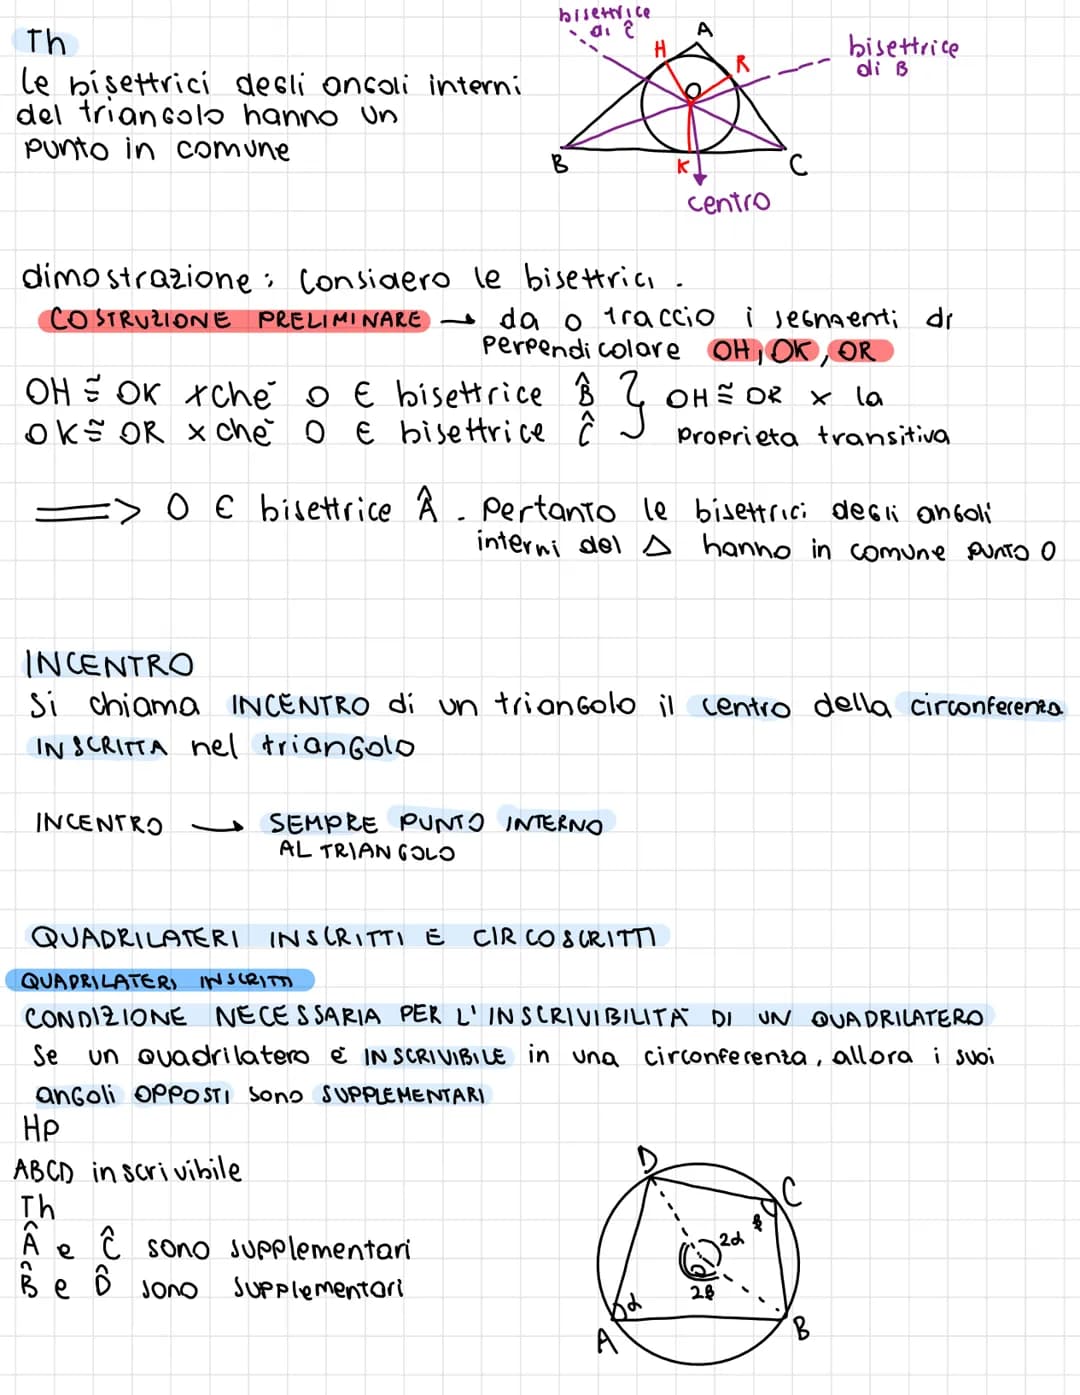 Th
le bisettrici degli angoli interni
del triangolo hanno un
punto in comune
bisettrice
di ĉ
A
H
R
bisettrice
di B
O
B
K
C
centro
dimostrazione: Considero le bisettrici.
COSTRUZIONE PRELIMINARE → da o traccio i segmenti di
perpendicolare OH, OK, OR
OH ≅ OK xchè O ∈ bisettrice B̂ } OH ≅ OR x la
OK ≅ OR xchè O ∈ bisettrice Ĉ proprieta transitiva
=> O ∈ bisettrice Â. Pertanto le bisettrici degli angoli
interni del △ hanno in comune punto O
INCENTRO
Si chiama INCENTRO di un triangolo il centro della circonferenza
INSCRITTA nel triangolo
INCENTRO → SEMPRE PUNTO INTERNO
AL TRIANGOLO
QUADRILATERI INSCRITTI E CIRCOSCRITTI
QUADRILATERI INSCRITTI
CONDIZIONE NECESSARIA PER L'INSCRIVIBILITÀ DI UN QUADRILATERO
Se un quadrilatero è INSCRIVIBILE in una circonferenza, allora i suoi
angoli OPPOSTI sono SUPPLEMENTARI
Hp
ABCD inscrivibile
Th
Â e Ĉ sono supplementari
B̂ e D̂ sono supplementari
D
C
β
2α
O
2β
α
A
B